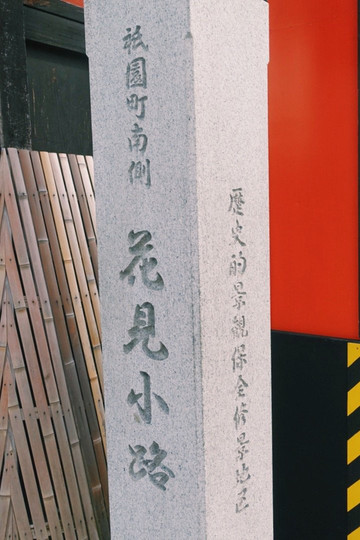 祇園町南側
花見小路
歴史的景観保全修景地区